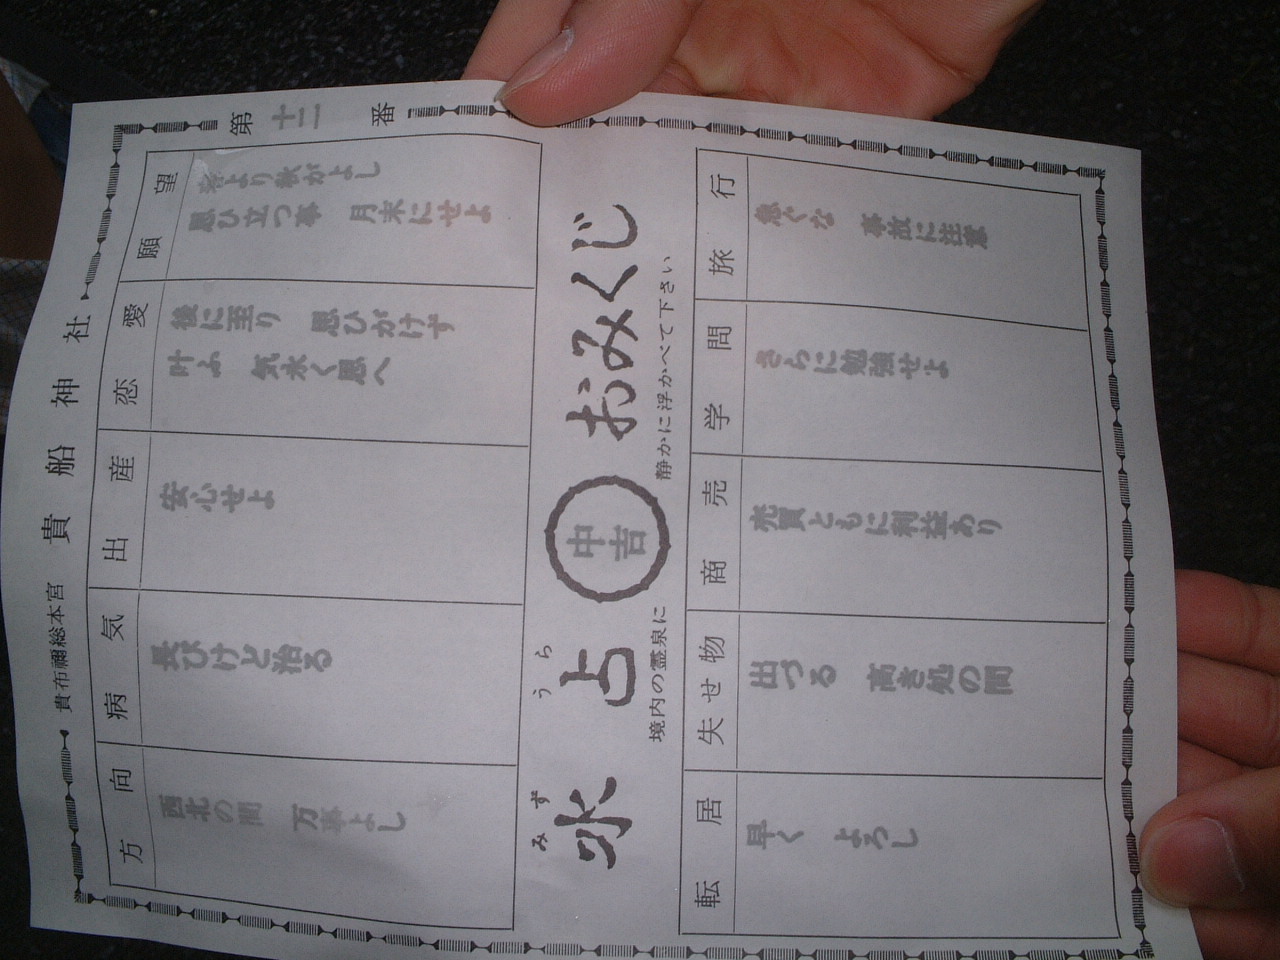 貴布禰総本宮 貴船神社
第十二番
方向
西北の間 万事よし
病気
長びけど治る
出産
安心せよ
恋愛
後に至り 思ひがけず
叶ふ 気永く思へ
願望
春より秋がよし
思ひ立つ事 月末にせよ
みず うら
水占 中吉 おみくじ
境内の霊泉に 静かに浮かべて下さい
転居
早く よろし
失せ物
出づる 高き処の間
商売
売買ともに利益あり
学問
さらに勉強せよ
旅行
急ぐな 事故に注意